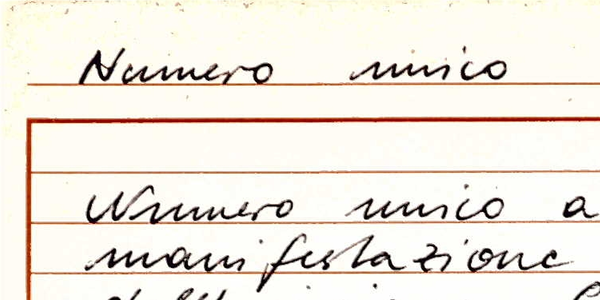 Numero unico
Numero unico a
manifestazione